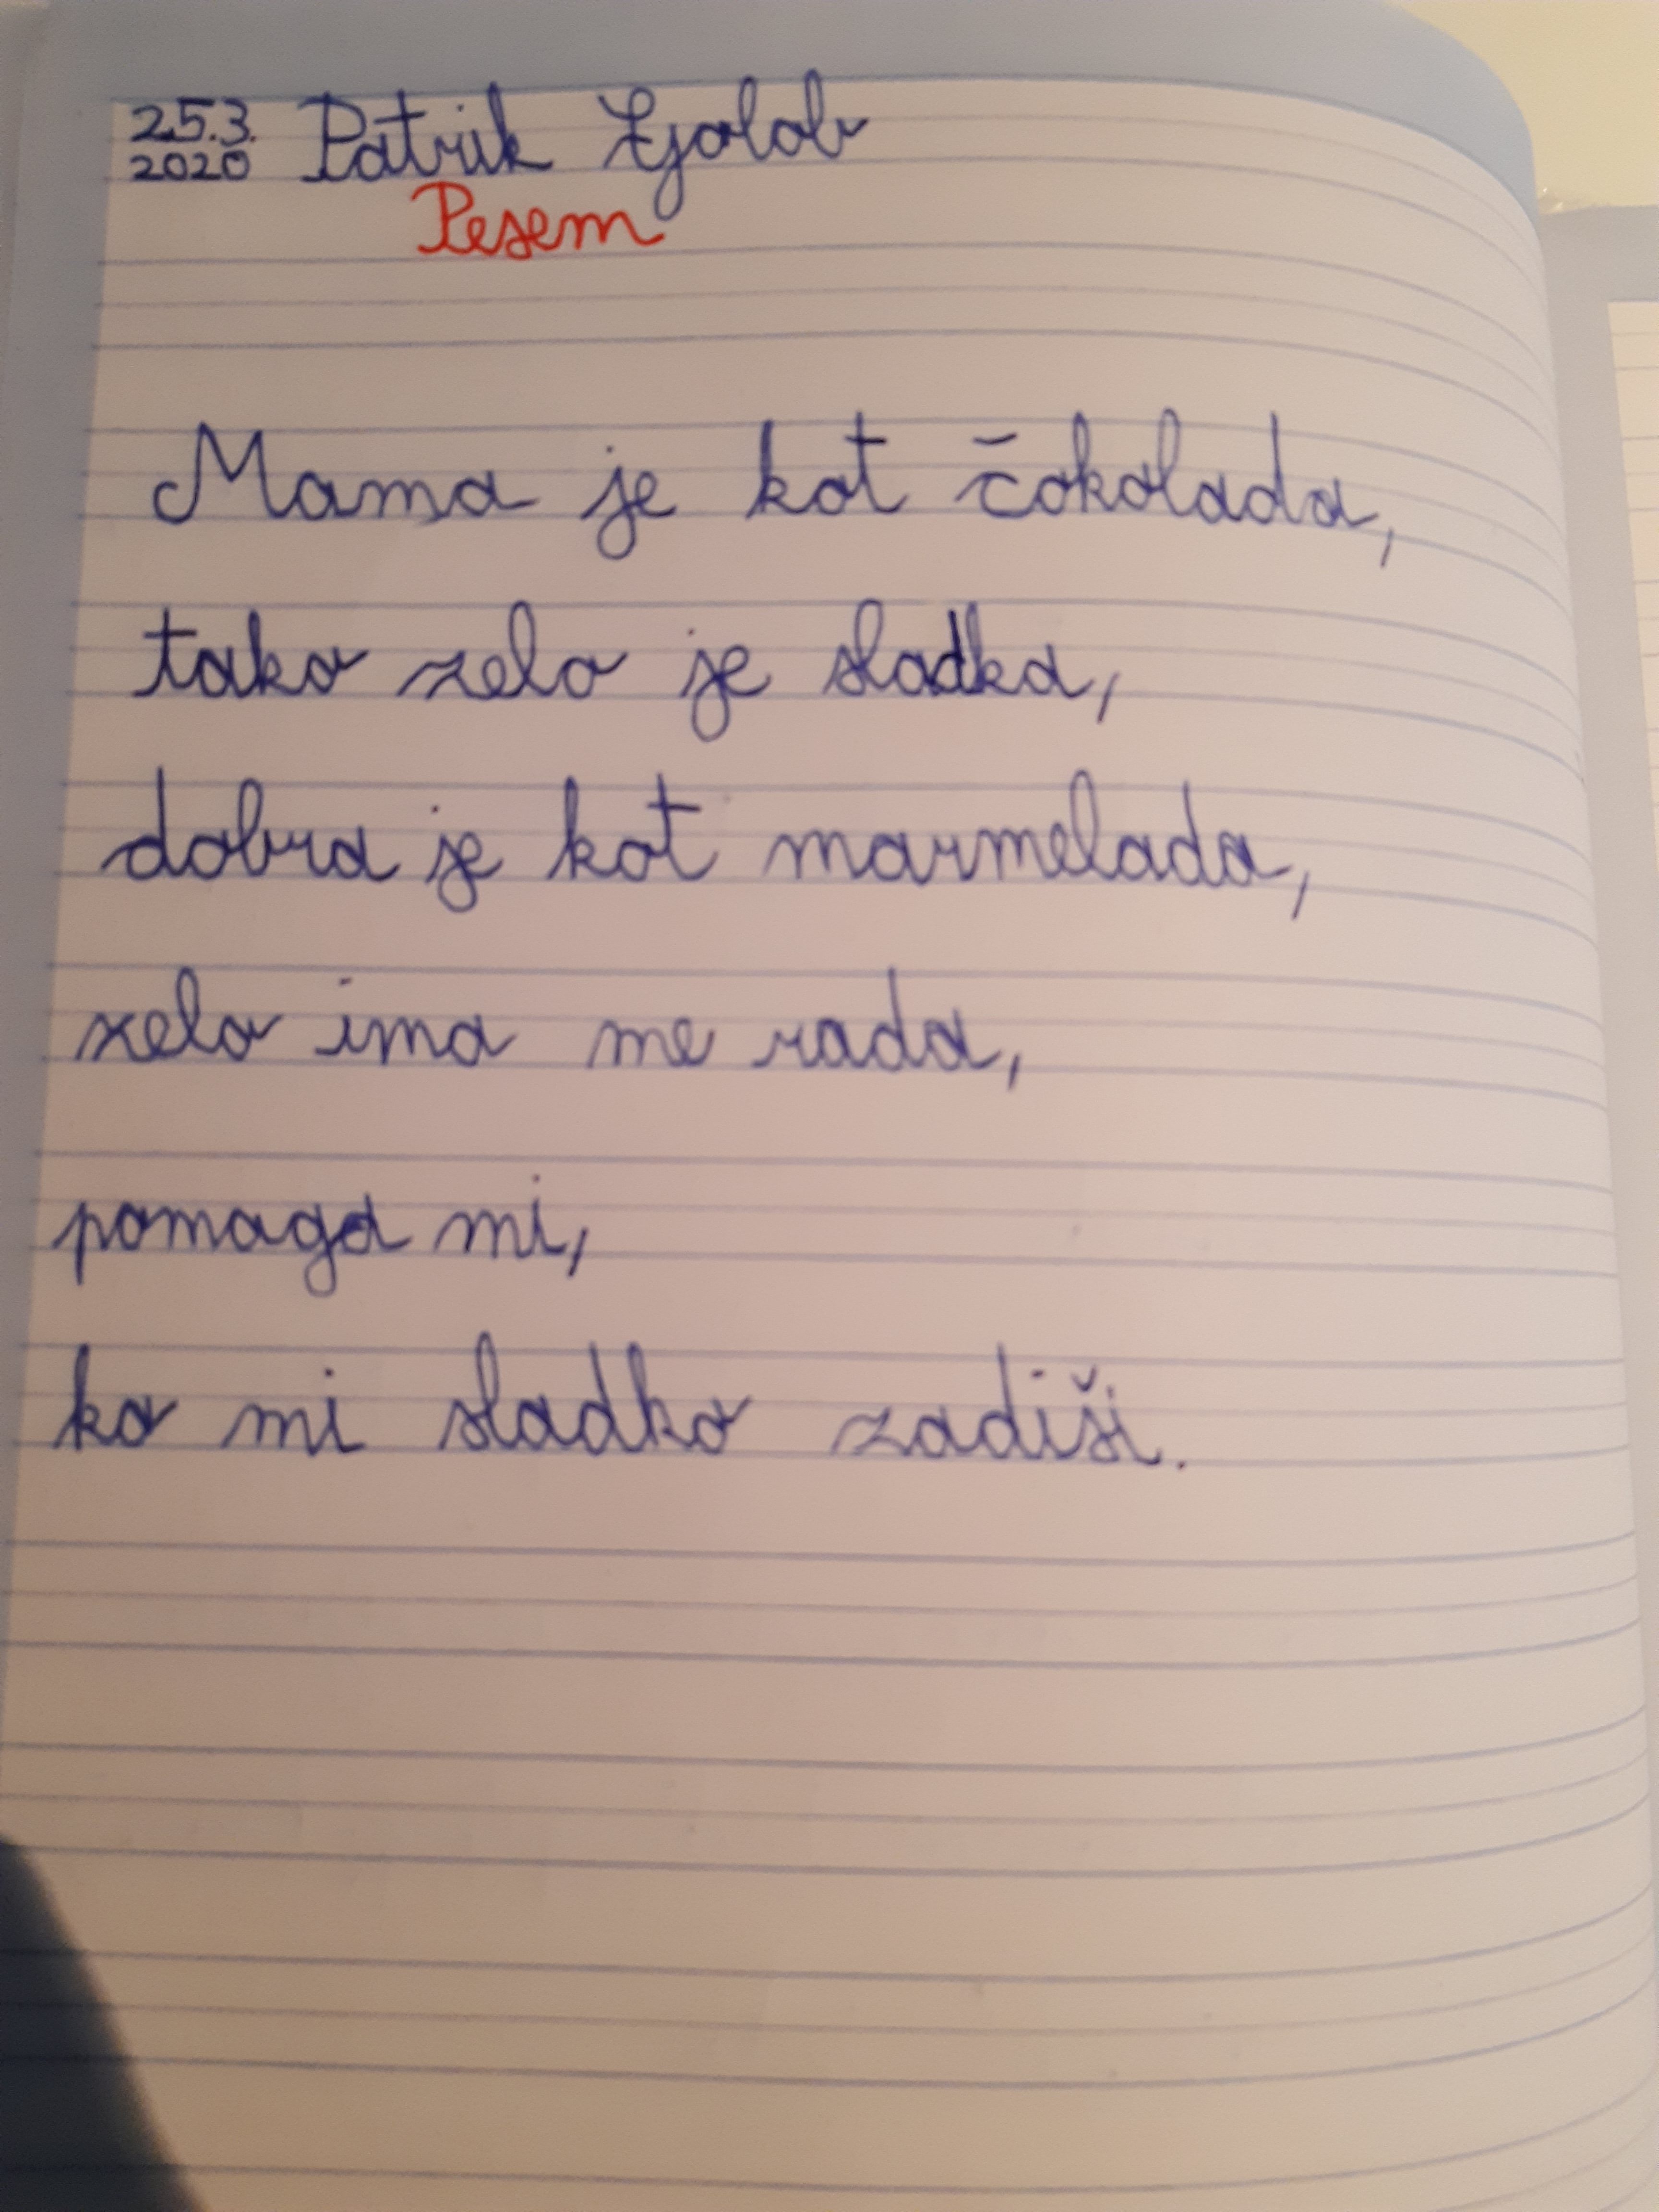 25.3. Patrik Golob
2020
Pesem
Mama je kot čokolada,
tako zelo je sladka,
dobra je kot marmelada,
zelo ima me rada,
pomaga mi,
ko mi sladko zadiši.